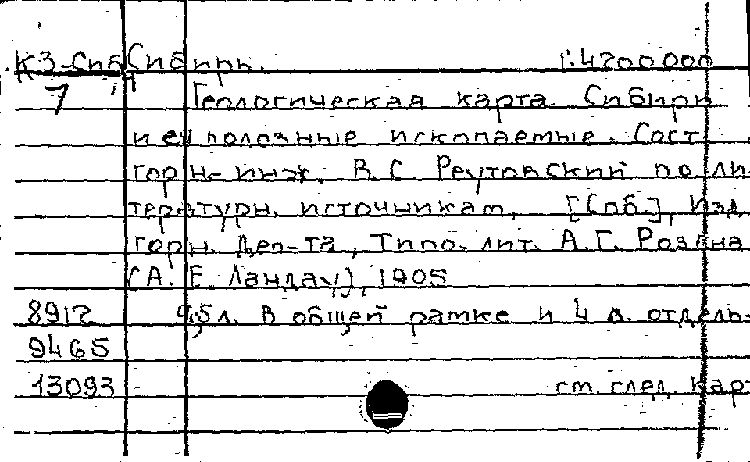 КЗ-Сиб Сибирь. 1:4200000
7 Геологическая карта Сибири
и ея полезные ископаемые. Сост.
горн.-инж. В.С. Реутовский по ли-
тературн. источникам. [Спб], Изд.
горн. Деп-та, Типо-лит. А.Г. Розена
(А.Е. Ландау), 1905
8912 л. В общей рамке и 4 л. отдель-
9465
13093 см. след. карт